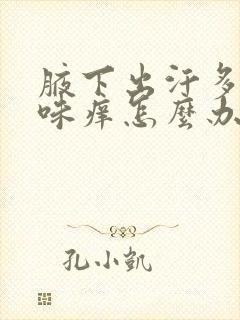 腋下出汗多
咪痒怎麽办
孔小凯